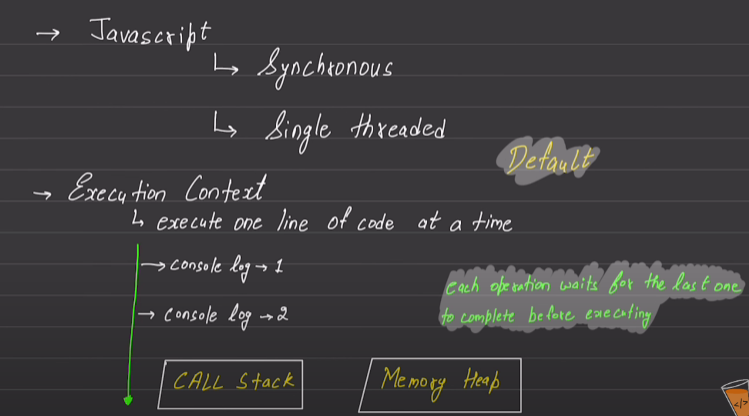 → Javascript
↳ Synchronous
↳ Single threaded
Default
→ Execution Context
↳ execute one line of code at a time
→ console log → 1
→ console log → 2
each operation waits for the last one
to complete before executing
CALL Stack
Memory Heap
</>